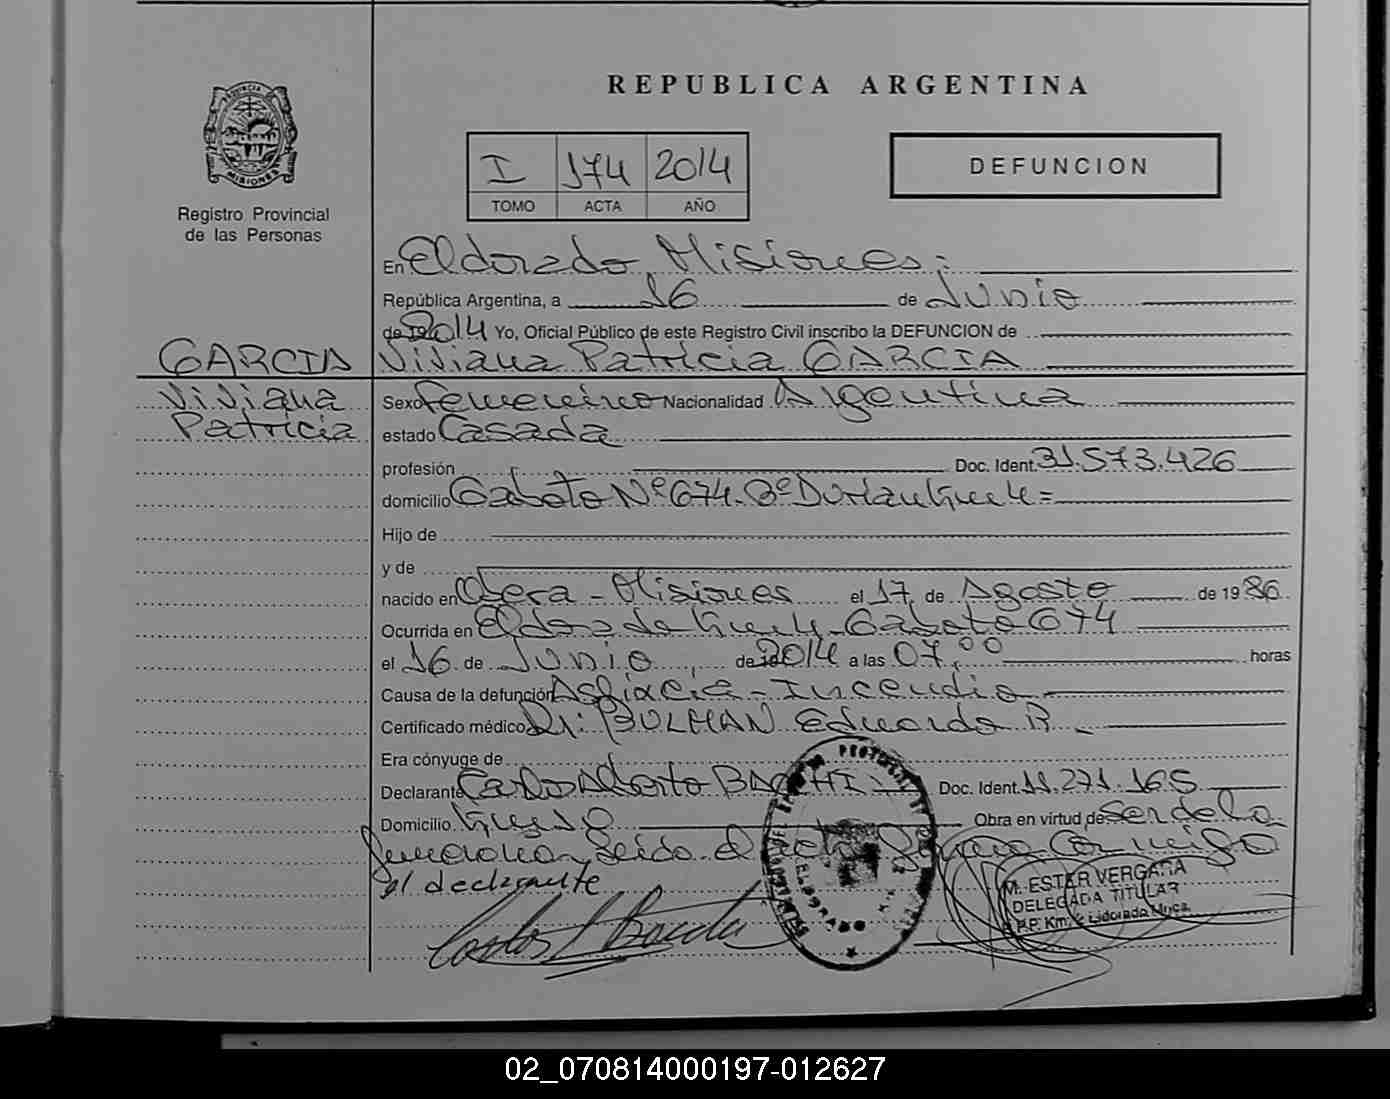 REPUBLICA ARGENTINA
PROVINCIA DE
MISIONES
Registro Provincial
de las Personas
I 174 2014
TOMO ACTA AÑO
DEFUNCION
En Eldorado, Misiones.
República Argentina, a 16 de Junio
de 2014 Yo, Oficial Público de este Registro Civil inscribo la DEFUNCION de
GARCIA Viviana Patricia GARCIA
Viviana Sexo Femenino Nacionalidad Argentina
Patricia estado Casada
profesión Doc. Ident. 31.573.426
domicilio Gaboto Nº 674. Bº
Hijo de
y de
nacido en Obera - Misiones el 17 de Agosto de 1986
Ocurrida en Eldorado Gaboto 674
el 16 de Junio de 2014 a las 07,00 horas
Causa de la defunción Asfixcia - Incendio
Certificado médico Dr: BULMAN Eduardo R.
Era cónyuge de
Declarante Carlos Alberto Doc. Ident. 11.271.165
Domicilio Obra en virtud de ser de la
leido el acta firma conmigo
el declarante
M. ESTER VERGARA
DELEGADA TITULAR
ELDORADO
02_070814000197-012627